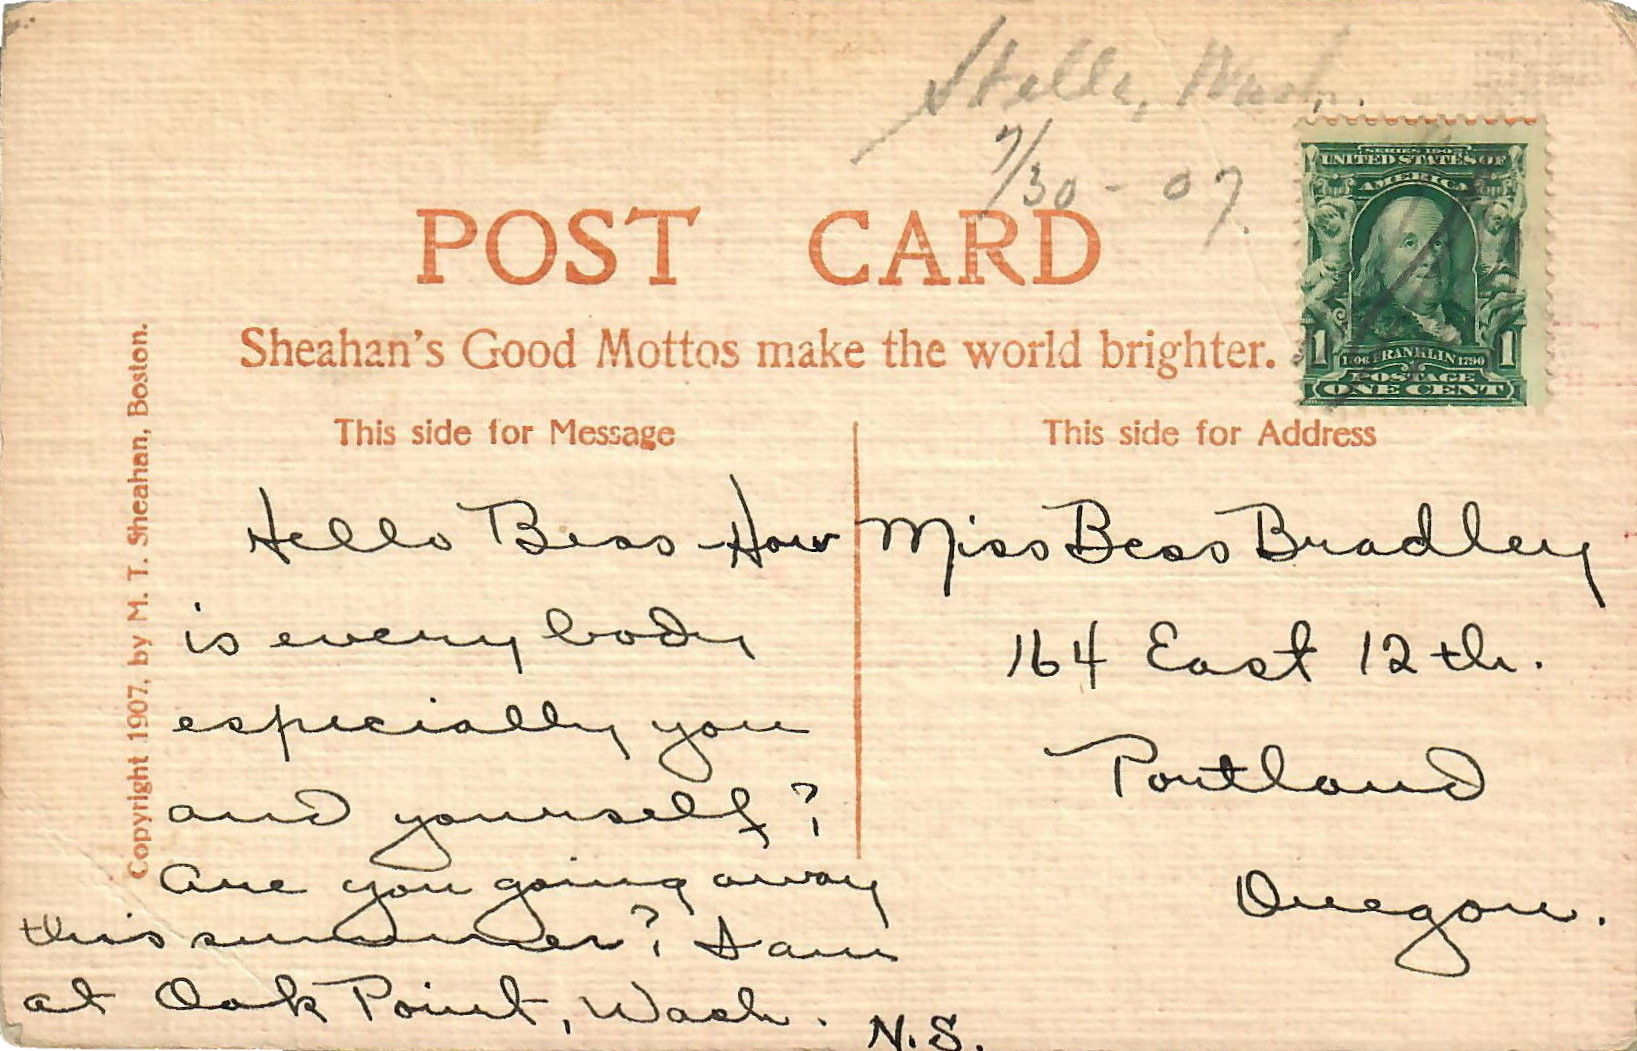 Stella, Wash.
7/30-07.
SERIES 1902
UNITED STATES OF
AMERICA
1 FRANKLIN 1790 1
POSTAGE
ONE CENT
POST CARD
Sheahan's Good Mottos make the world brighter.
Copyright 1907, by M. T. Sheahan, Boston.
This side for Message
Hello Bess How
is every body
especially you
and yourself?
Are you going away
this summer? I am
at Oak Point, Wash.
N.S.
This side for Address
Miss Bess Bradley
164 East 12 th.
Portland
Oregon.